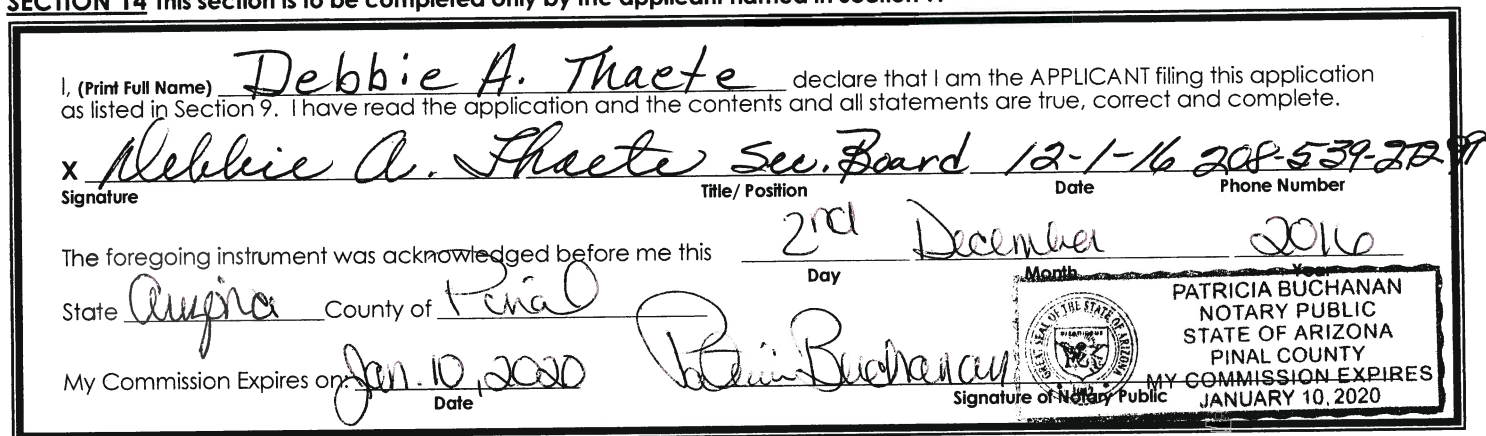 SECTION 14 This section is to be completed only by the applicant named in Section 9.
I, (Print Full Name) Debbie A. Thaete declare that I am the APPLICANT filing this application
as listed in Section 9. I have read the application and the contents and all statements are true, correct and complete.
x Debbie A. Thaete Sec. Board 12-1-16 208-539-
Signature Title/ Position Date Phone Number
The foregoing instrument was acknowledged before me this 2nd December 2016
Day Month Year
State Arizona County of Pinal
My Commission Expires on: Jan. 10, 2020 Patricia Buchanan
Date Signature of Notary Public
GREAT SEAL OF THE STATE OF ARIZONA
PATRICIA BUCHANAN
NOTARY PUBLIC
STATE OF ARIZONA
PINAL COUNTY
MY COMMISSION EXPIRES
JANUARY 10, 2020